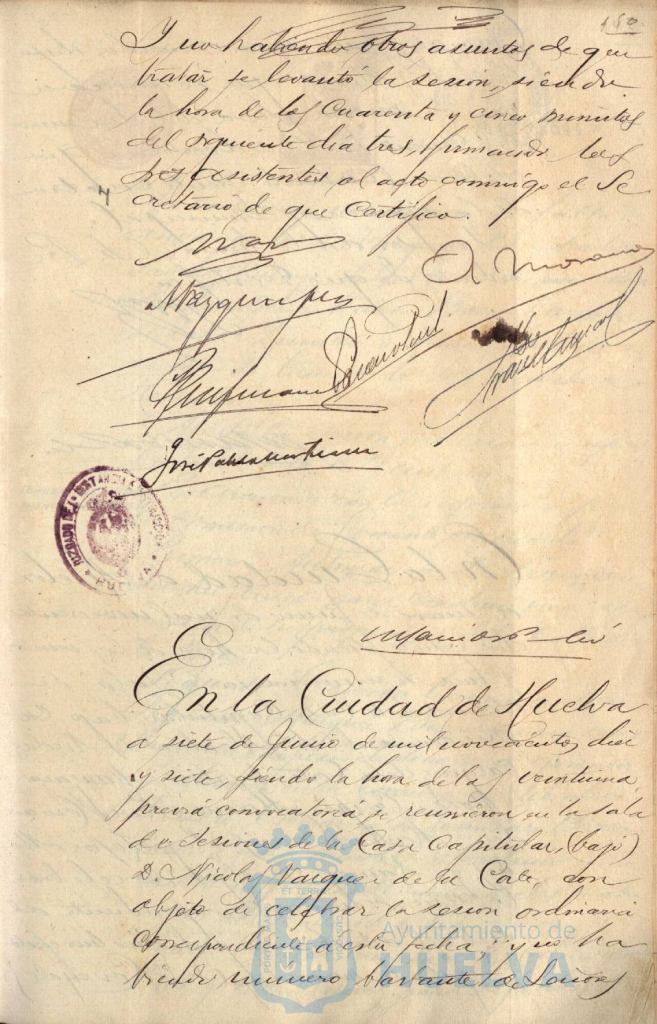 Y no habiendo otros asuntos de que
tratar se levantó la sesion, siendo
la hora de las Cuarenta y cinco minutos
del siguiente dia tres, firmando los
Sres asistentes al acto conmigo el Se
cretario de que Certifico.
A Moreno
JUZGADO DE 1ª INSTANCIA
HUELVA
En la Ciudad de Huelva
a siete de Junio de mil novecientos diez
y siete, siendo la hora de las veintiuna,
previa convocatoria se reunieron en la sala
de Sesiones de la Casa Capitular, (bajo)
D. Nicolas Vazquez de la Corte, con
objeto de celebrar la sesion ordinaria
correspondiente a esta fecha y no ha
biendo numero bastante de Señores
Ayuntamiento de
HUELVA